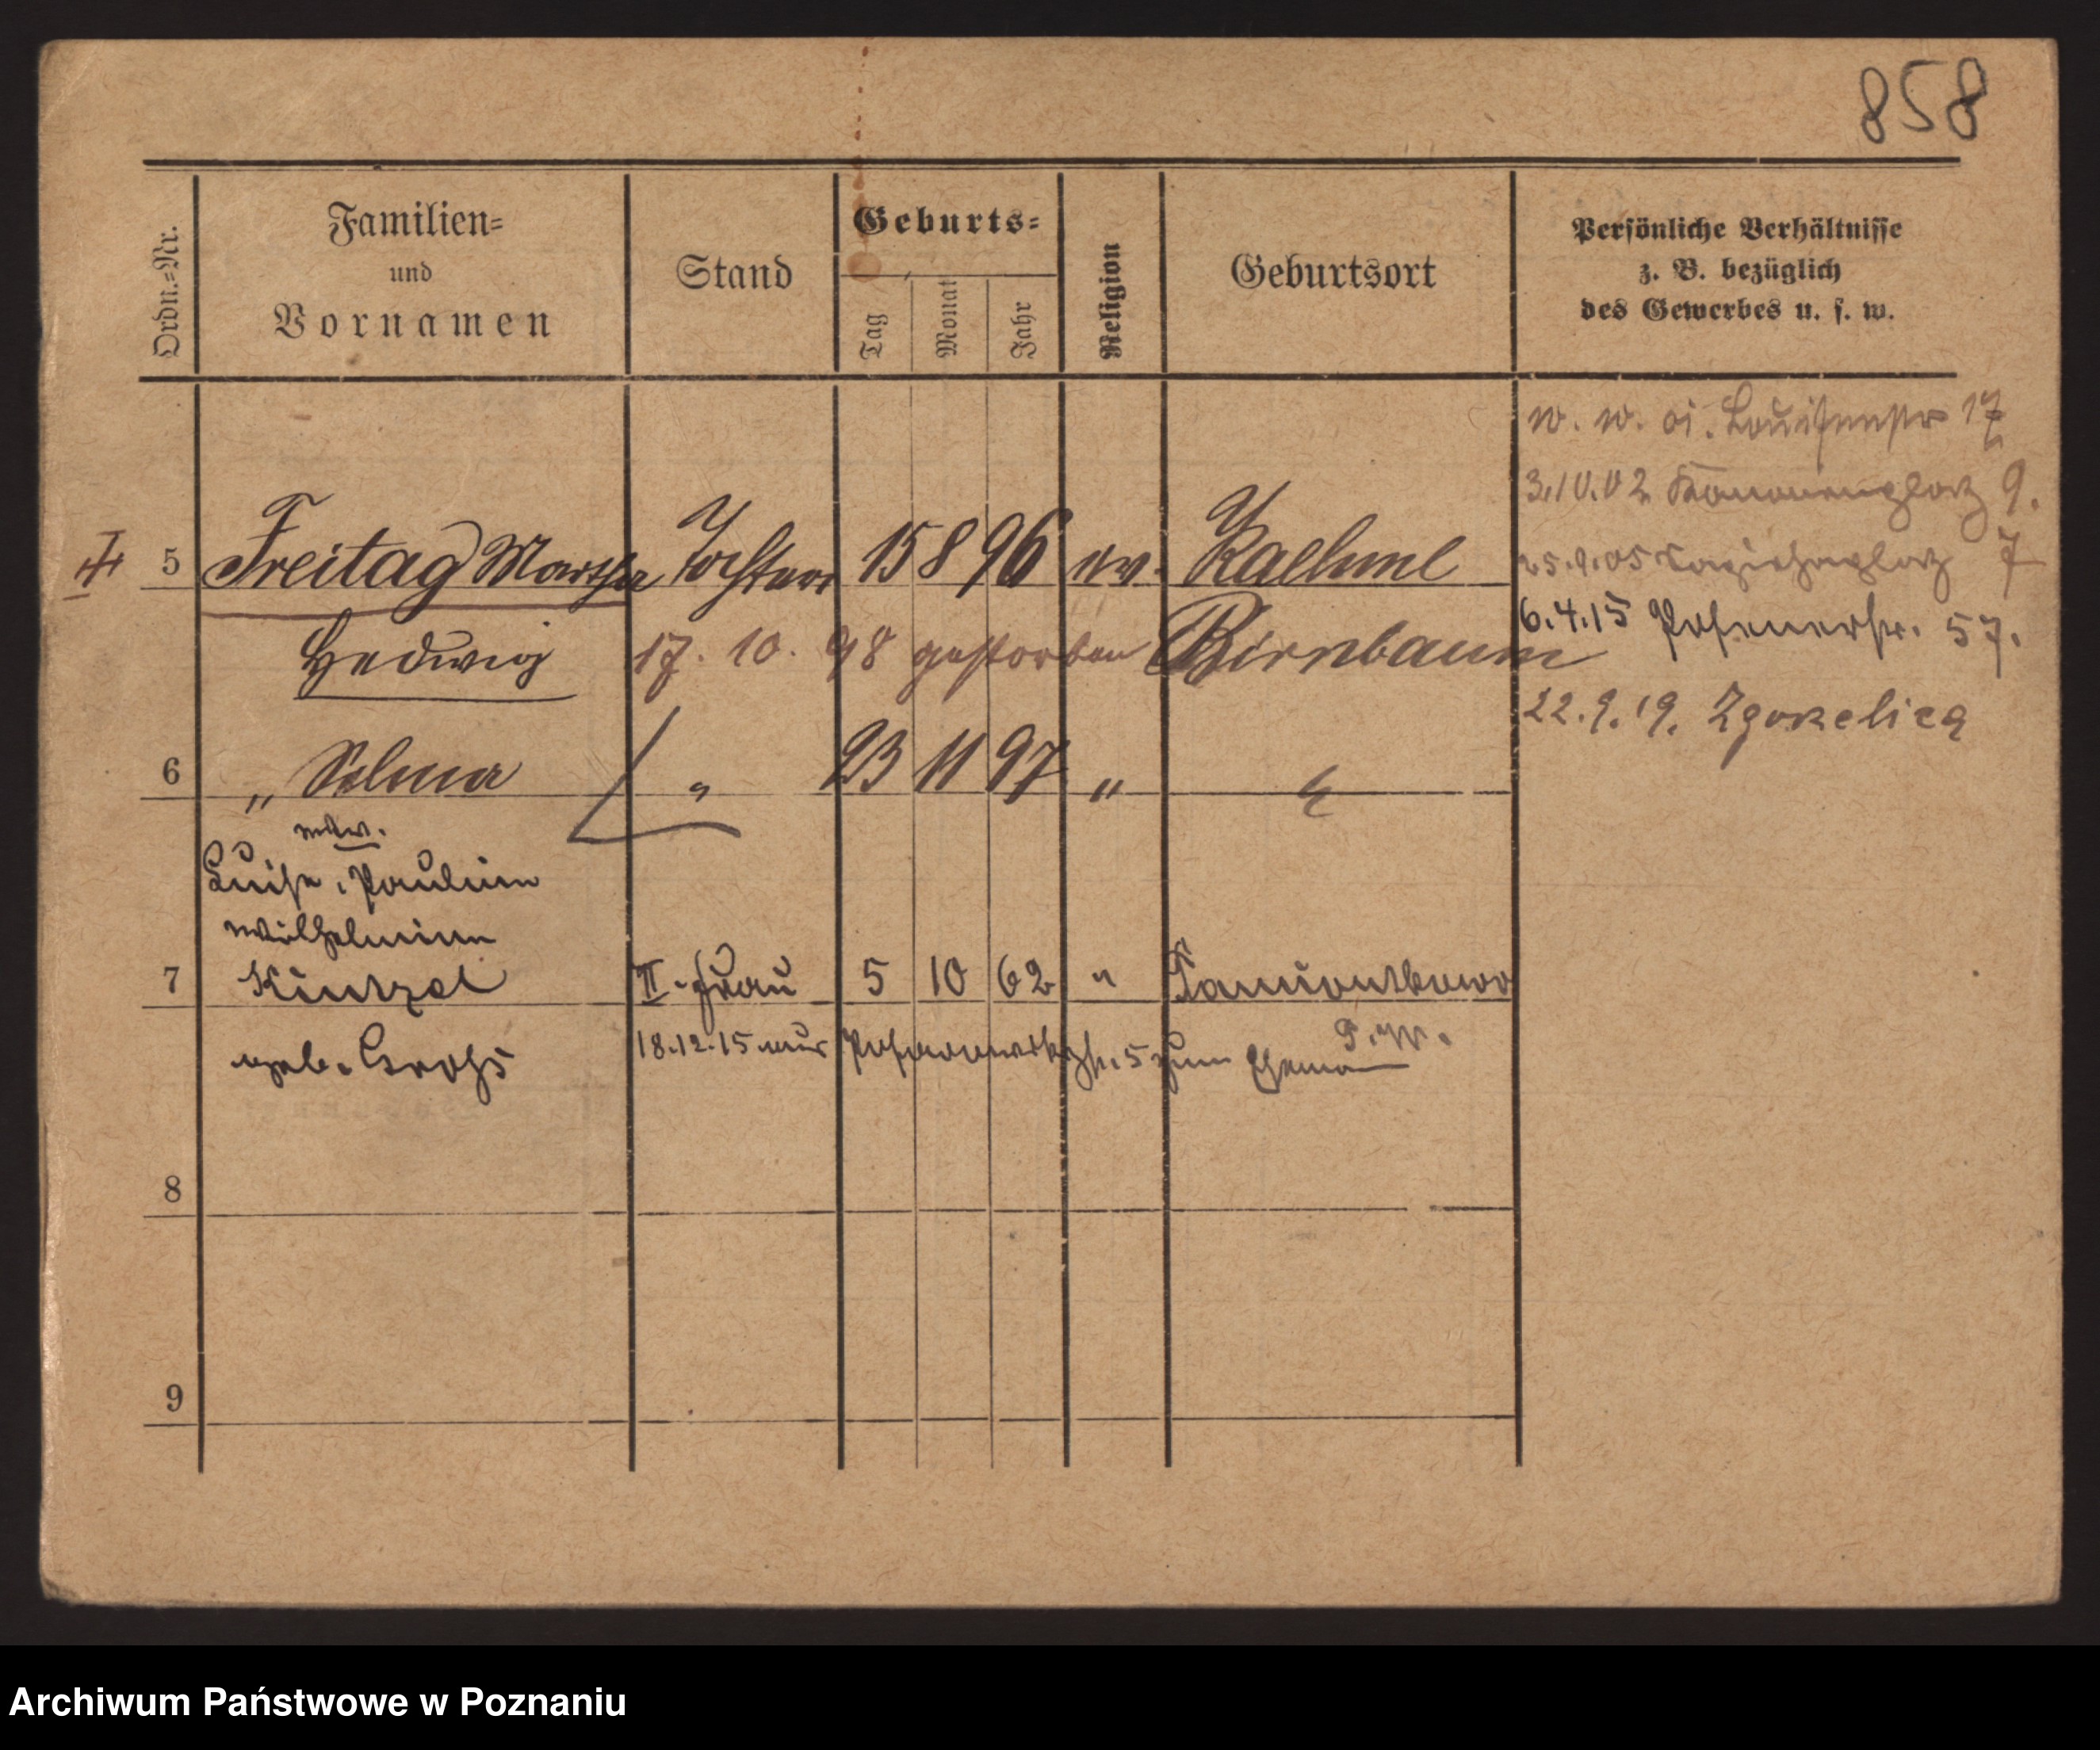 858
Ordn.=Nr.
Familien=
und
Vornamen
Stand
Geburts=
Tag
Monat
Jahr
Religion
Geburtsort
Persönliche Verhältnisse
z. B. bezüglich
des Gewerbes u. s. w.
w. w. Louisenstr 17
3.10.02 Kanonenplatz 9.
25.9.05 Sapiehaplatz 7
6.4.15 Posenerstr. 57.
22.9.19. Zgorzelica
5 Freitag Martha Tochter 15 8 96 ev. Kaehme
Hedwig 17. 10. 98 gestorben Birnbaum
6 „ Selma „ 23 11 97 „
Luise, Pauline
Wilhelmine
7 Künzel II. Frau 5 10 62 „
geb. Gross 18.12.15 aus 5 zum Ehemann
8
9
Archiwum Państwowe w Poznaniu